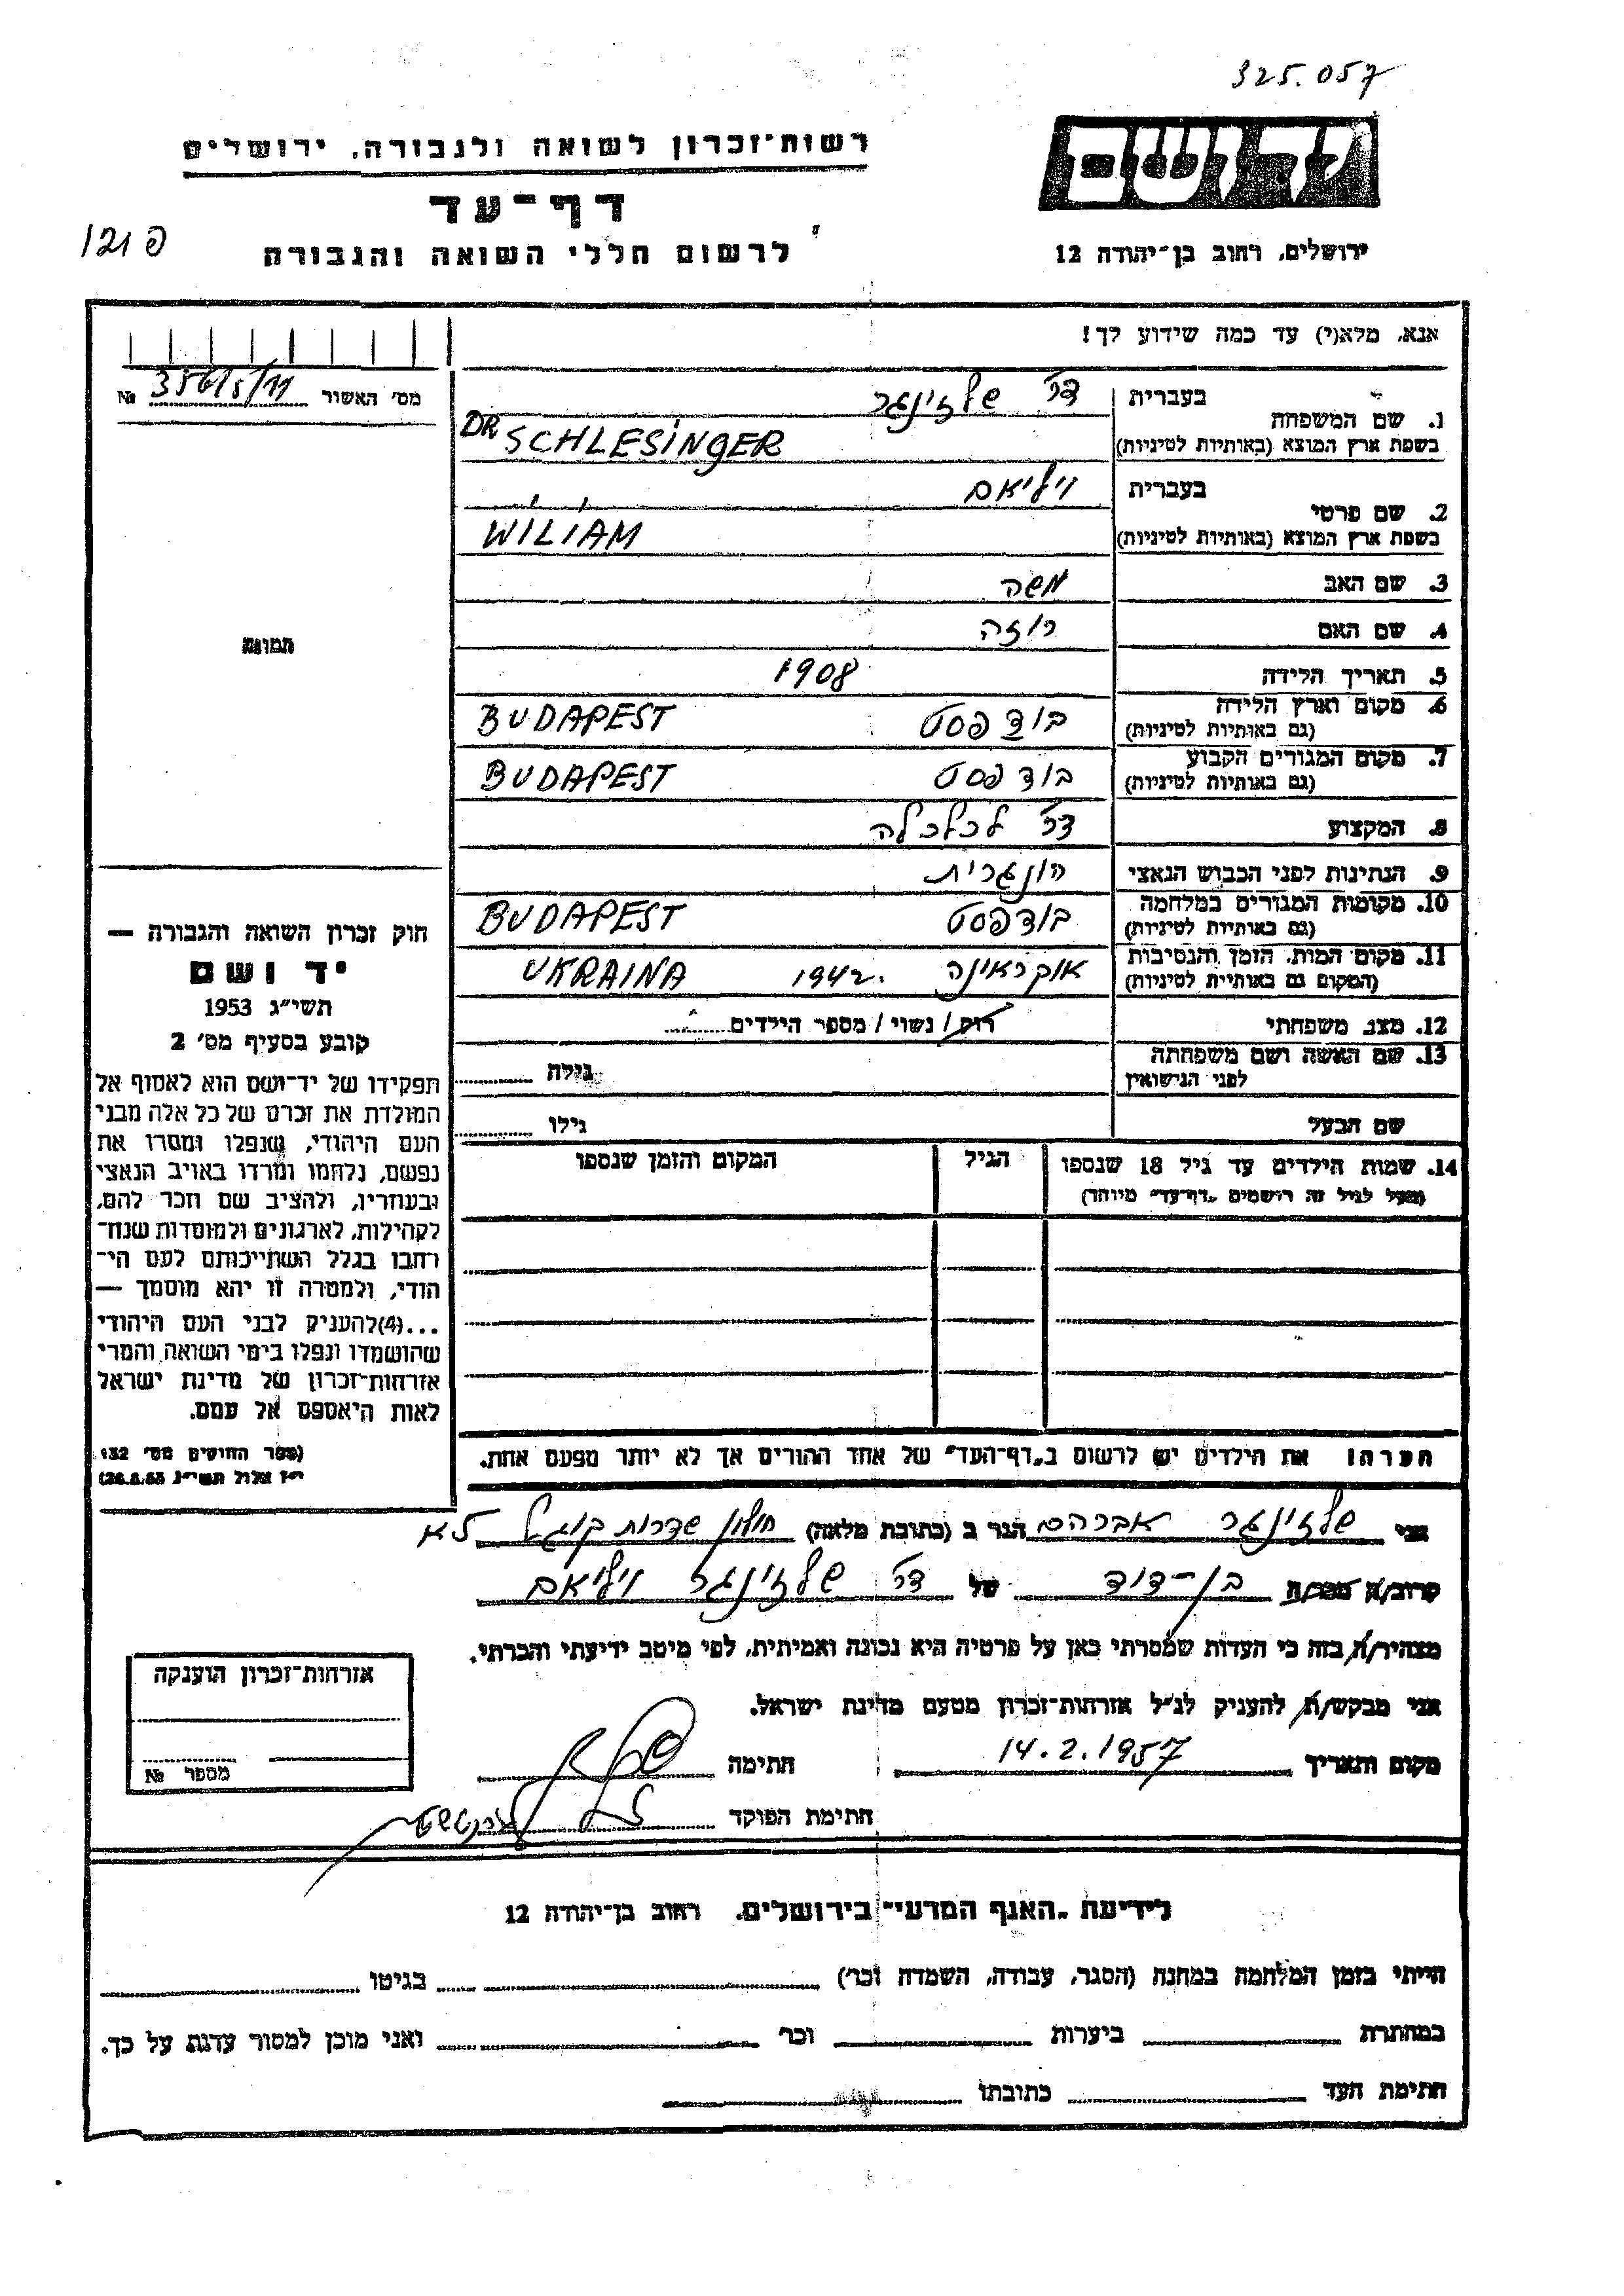 325.057
רשות־זכרון לשואה ולגבורה, ירושלים
יד ושם
דף־עד
פ 121
לרשום חללי השואה והגבורה
ירושלים, רחוב בן־יהודה 12
אנא, מלא(י) עד כמה שידוע לך!
מס׳ האשור 356/5/11 №
1. שם המשפחה בעברית ד״ר שלזינגר
בשפת ארץ המוצא (באותיות לטיניות) DR SCHLESINGER
2. שם פרטי בעברית ויליאם
בשפת ארץ המוצא (באותיות לטיניות) WILIAM
3. שם האב משה
4. שם האם רוזה
תמונה
5. תאריך הלידה 1908
6. מקום וארץ הלידה (גם באותיות לטיניות) בודפסט BUDAPEST
7. מקום המגורים הקבוע (גם באותיות לטיניות) בודפסט BUDAPEST
8. המקצוע ד״ר לכלכלה
9. הנתינות לפני הכבוש הנאצי הונגרית
10. מקומות המגורים במלחמה (גם באותיות לטיניות) בודפסט BUDAPEST
11. מקום המות, הזמן והנסיבות (המקום גם באותיות לטיניות) אוקראינה 1942. UKRAINA
12. מצב משפחתי רוק / נשוי / מספר הילדים
13. שם האשה ושם משפחתה לפני הנישואין גילה
שם הבעל גילו
14. שמות הילדים עד גיל 18 שנספו הגיל המקום והזמן שנספו
(מעל לגיל זה רושמים „דף־עד״ מיוחד)
חוק זכרון השואה והגבורה —
יד ושם
תשי״ג 1953
קובע בסעיף מס׳ 2
תפקידו של יד־ושם הוא לאסוף אל
המולדת את זכרם של כל אלה מבני
העם היהודי, שנפלו ומסרו את
נפשם, נלחמו ומרדו באויב הנאצי
ובעוזריו, ולהציב שם וזכר להם,
לקהילות, לארגונים ולמוסדות שנח־
רבו בגלל השתייכותם לעם הי־
הודי, ולמטרה זו יהא מוסמך —
...(4) להעניק לבני העם היהודי
שהושמדו ונפלו בימי השואה והמרי
אזרחות־זכרון של מדינת ישראל
לאות היאספם אל עמם.
(ספר החוקים מס׳ 132
י״ז אלול תשי״ג 28.8.53)
הערה: את הילדים יש לרשום ב„דף־העד״ של אחד ההורים אך לא יותר מפעם אחת.
אני שלזינגר אברהם הגר ב (כתובת מלאה) חולון שדרות קוגל
קרוב/ה מכר/ה בן־דוד של ד״ר שלזינגר ויליאם
מצהיר/ה בזה כי העדות שמסרתי כאן על פרטיה היא נכונה ואמיתית, לפי מיטב ידיעתי והכרתי.
אני מבקש/ת להעניק לנ״ל אזרחות־זכרון מטעם מדינת ישראל.
מקום ותאריך 14.2.1957 חתימה
חתימת הפוקד
אזרחות־זכרון הוענקה
מספר №
לידיעת „האגף המדעי״ בירושלים, רחוב בן־יהודה 12
הייתי בזמן המלחמה במחנה (הסגר, עבודה, השמדה וכר׳) בגיטו
במחתרת ביערות וכר׳ ואני מוכן למסור עדות על כך.
חתימת העד כתובתו